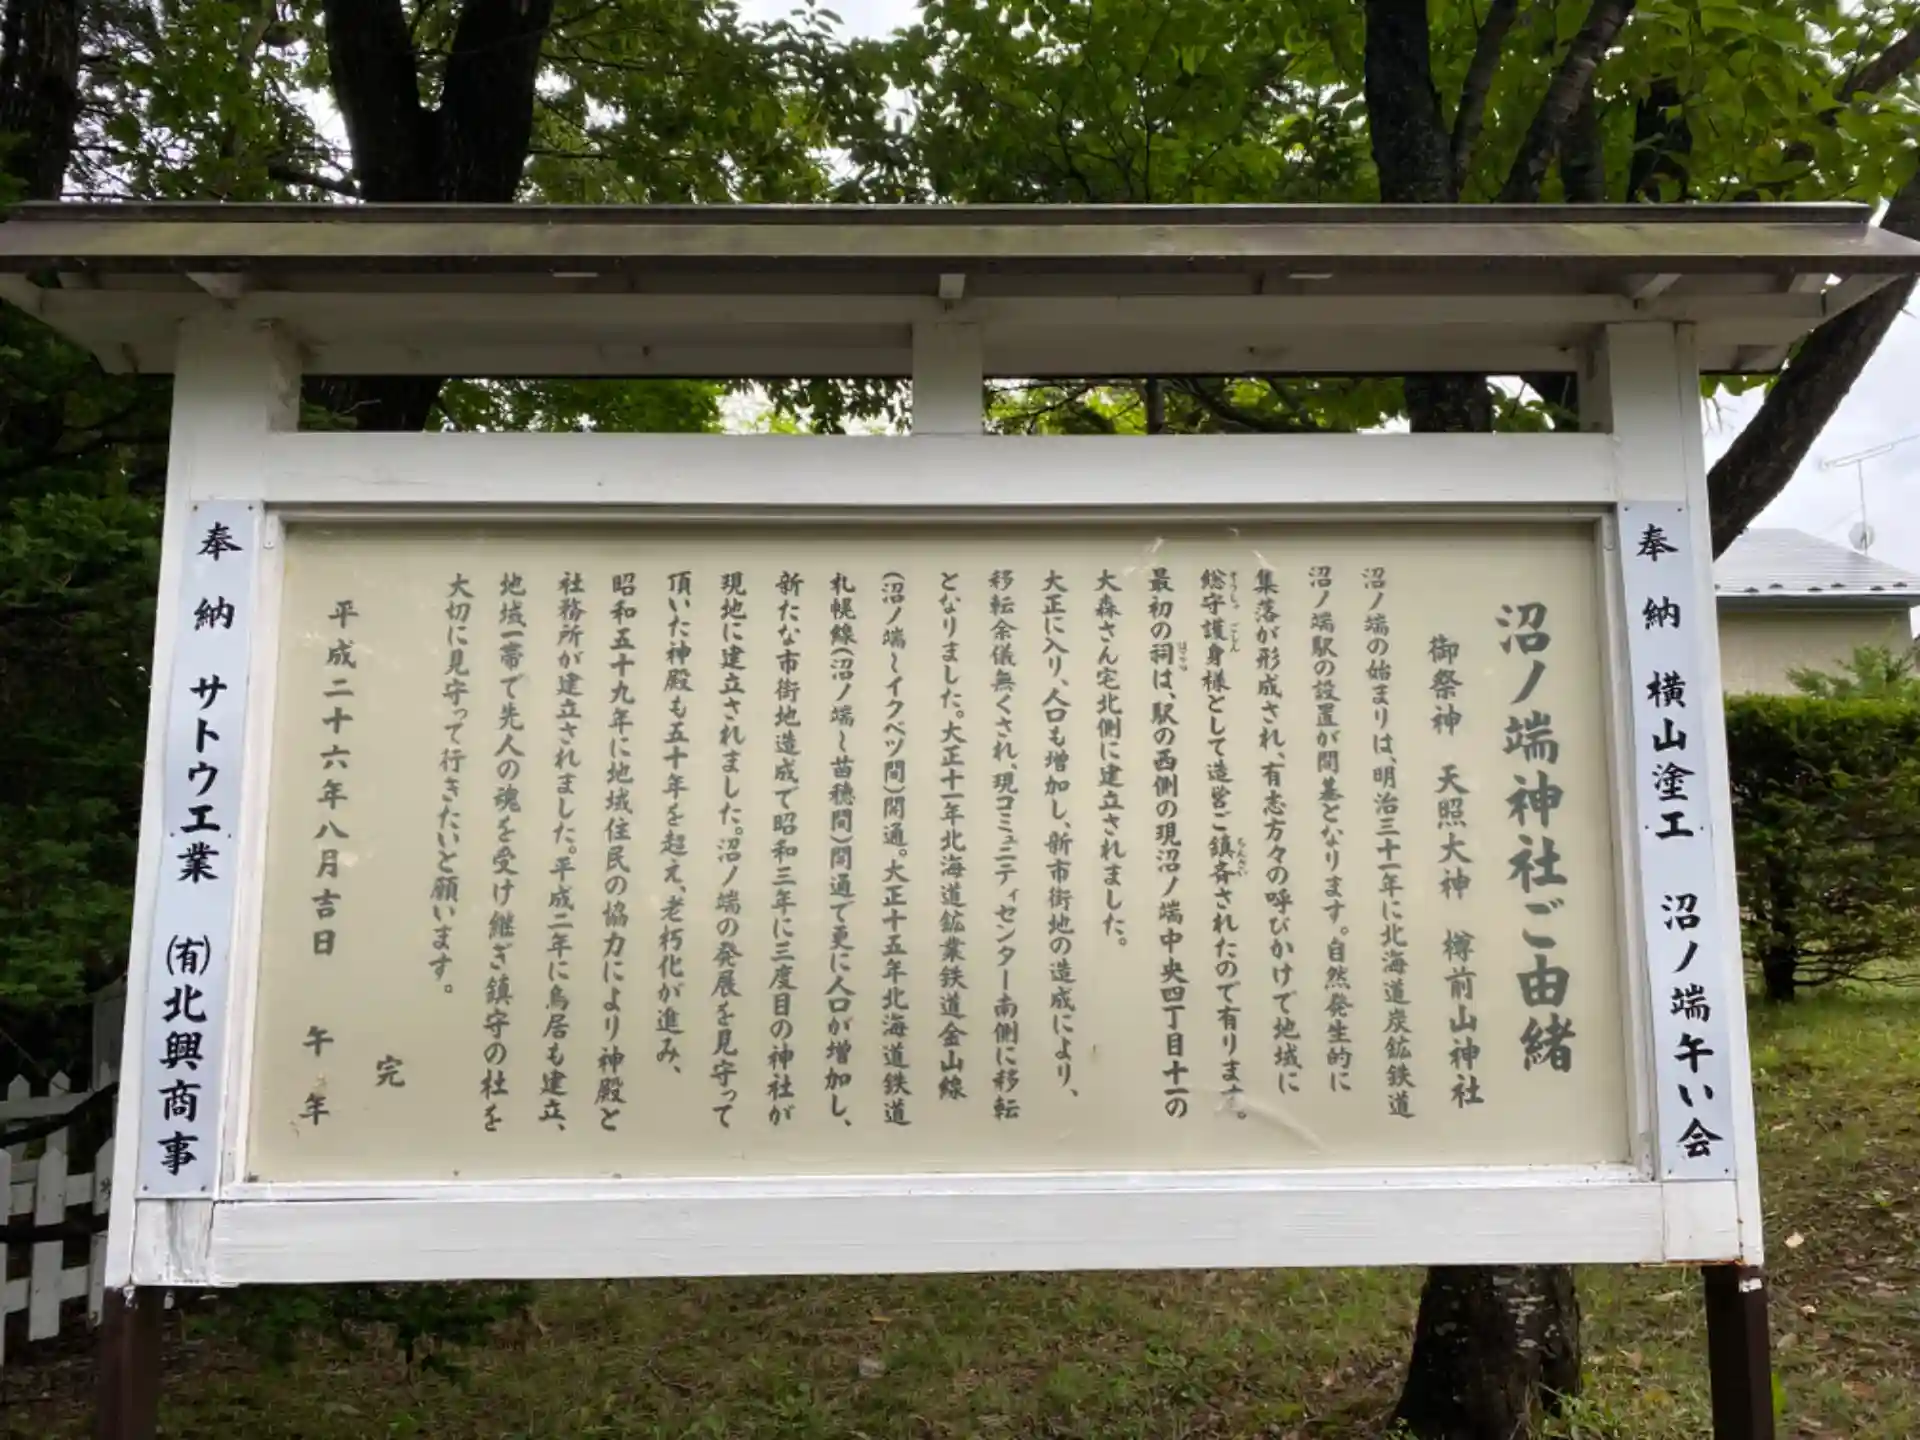 奉納 横山塗工 沼ノ端午い会
沼ノ端神社ご由緒
御祭神 天照大神 樽前山神社
沼ノ端の始まりは、明治三十一年に北海道炭鉱鉄道
沼ノ端駅の設置が開基となります。自然発生的に
集落が形成され、有志方々の呼びかけで地域に
総守護身様として造営ご鎮斉されたので有ります。
最初の祠は、駅の西側の現沼ノ端中央四丁目十一の
大森さん宅北側に建立されました。
大正に入り、人口も増加し、新市街地の造成により、
移転余儀無くされ、現コミュニティセンター南側に移転
となりました。大正十一年北海道鉱業鉄道金山線
(沼ノ端〜イクベツ間)開通。大正十五年北海道鉄道
札幌線(沼ノ端〜苗穂間)開通で更に人口が増加し、
新たな市街地造成で昭和三年に三度目の神社が
現地に建立されました。沼ノ端の発展を見守って
頂いた神殿も五十年を超え、老朽化が進み、
昭和五十九年に地域住民の協力により神殿と
社務所が建立されました。平成二年に鳥居も建立、
地域一帯で先人の魂を受け継ぎ鎮守の杜を
大切に見守って行きたいと願います。
完
平成二十六年八月吉日 午年
奉納 サトウ工業 (有)北興商事